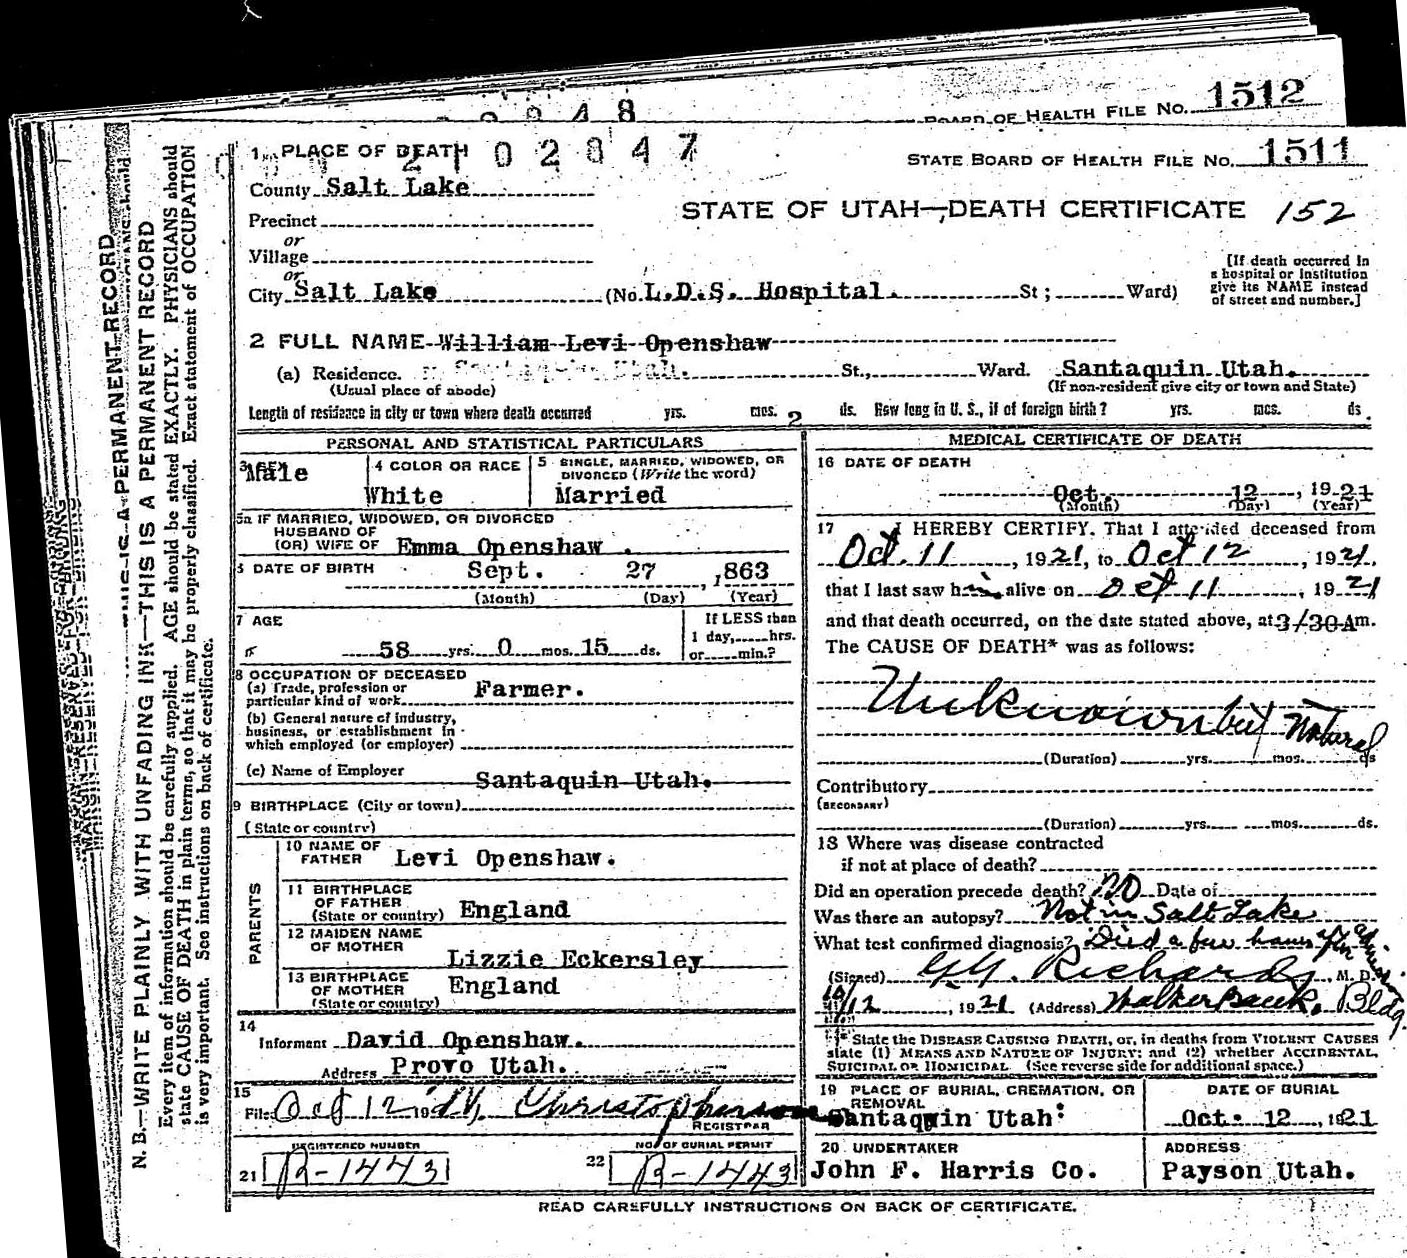 2048
BOARD OF HEALTH FILE NO. 1512
1 PLACE OF DEATH 2102047
STATE BOARD OF HEALTH FILE NO. 1511
County Salt Lake
STATE OF UTAH—DEATH CERTIFICATE 152
Precinct
or
Village
or
City Salt Lake (No. L.D.S. Hospital. St; Ward)
[If death occurred in
a hospital or institution
give its NAME instead
of street and number.]
2 FULL NAME William Levi Openshaw
(a) Residence. Santaquin Utah. St., Ward. Santaquin Utah.
(Usual place of abode) (If non-resident give city or town and State)
Length of residence in city or town where death occurred yrs. mos. 2 ds. How long in U. S., if of foreign birth? yrs. mos. ds.
PERSONAL AND STATISTICAL PARTICULARS
3 SEX Male
4 COLOR OR RACE White
5 SINGLE, MARRIED, WIDOWED, OR
DIVORCED (Write the word)
Married
5a IF MARRIED, WIDOWED, OR DIVORCED
HUSBAND OF
(OR) WIFE OF Emma Openshaw .
6 DATE OF BIRTH Sept. 27 , 1863
(Month) (Day) (Year)
7 AGE
58 yrs. 0 mos. 15 ds.
If LESS than
1 day, hrs.
or min.?
8 OCCUPATION OF DECEASED
(a) Trade, profession or
particular kind of work Farmer.
(b) General nature of industry,
business, or establishment in
which employed (or employer)
(c) Name of Employer
Santaquin Utah.
9 BIRTHPLACE (City or town)
(State or country)
PARENTS
10 NAME OF
FATHER Levi Openshaw.
11 BIRTHPLACE
OF FATHER
(State or country) England
12 MAIDEN NAME
OF MOTHER
Lizzie Eckersley
13 BIRTHPLACE
OF MOTHER England
(State or country)
14
Informant David Openshaw.
Address Provo Utah.
15
Filed Oct 12 1921, Christopherson
REGISTRAR
REGISTERED NUMBER
21 R-1443
NO. OF BURIAL PERMIT
22 R-1443
MEDICAL CERTIFICATE OF DEATH
16 DATE OF DEATH
Oct. 12 , 1921
(Month) (Day) (Year)
17 I HEREBY CERTIFY. That I attended deceased from
Oct. 11 , 1921, to Oct 12 , 1921,
that I last saw him alive on Oct 11 , 1921
and that death occurred, on the date stated above, at 3/30 Am.
The CAUSE OF DEATH* was as follows:
Unknown but Natural
(Duration) yrs. mos. ds
Contributory
(SECONDARY)
(Duration) yrs. mos. ds.
18 Where was disease contracted
if not at place of death?
Did an operation precede death? NO Date of
Was there an autopsy? Not in Salt Lake
What test confirmed diagnosis? Died a few hours after
(Signed) G.G. Richards , M. D.
10/12 , 1921 (Address) Walker Bank, Bldg.
* State the DISEASE CAUSING DEATH, or, in deaths from VIOLENT CAUSES
state (1) MEANS AND NATURE OF INJURY; and (2) whether ACCIDENTAL,
SUICIDAL OR HOMICIDAL (See reverse side for additional space.)
19 PLACE OF BURIAL, CREMATION, OR
REMOVAL
Santaquin Utah
DATE OF BURIAL
Oct. 12 , 1921
20 UNDERTAKER
John F. Harris Co.
ADDRESS
Payson Utah.
READ CAREFULLY INSTRUCTIONS ON BACK OF CERTIFICATE.
MARGIN RESERVED FOR BINDING
THIS IS A PERMANENT RECORD
N. B.—WRITE PLAINLY WITH UNFADING INK—THIS IS A PERMANENT RECORD
Every item of information should be carefully supplied. AGE should be stated EXACTLY. PHYSICIANS should
state CAUSE OF DEATH in plain terms, so that it may be properly classified. Exact statement of OCCUPATION
is very important. See instructions on back of certificate.